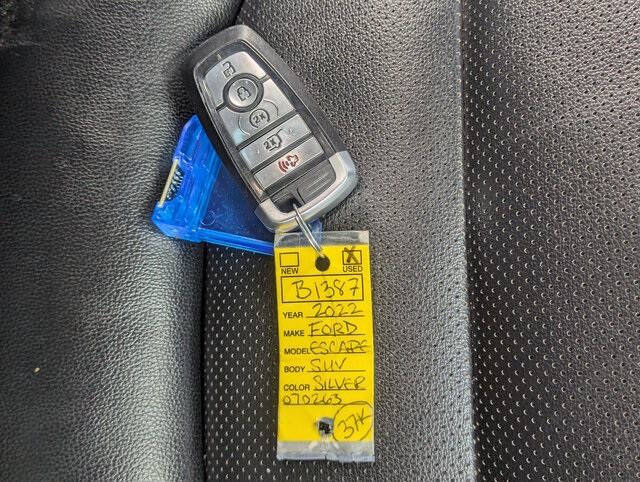 2x
2x
NEW X USED
B1387
YEAR 2022
MAKE FORD
MODEL ESCAPE
BODY SUV
COLOR SILVER
070263
37K